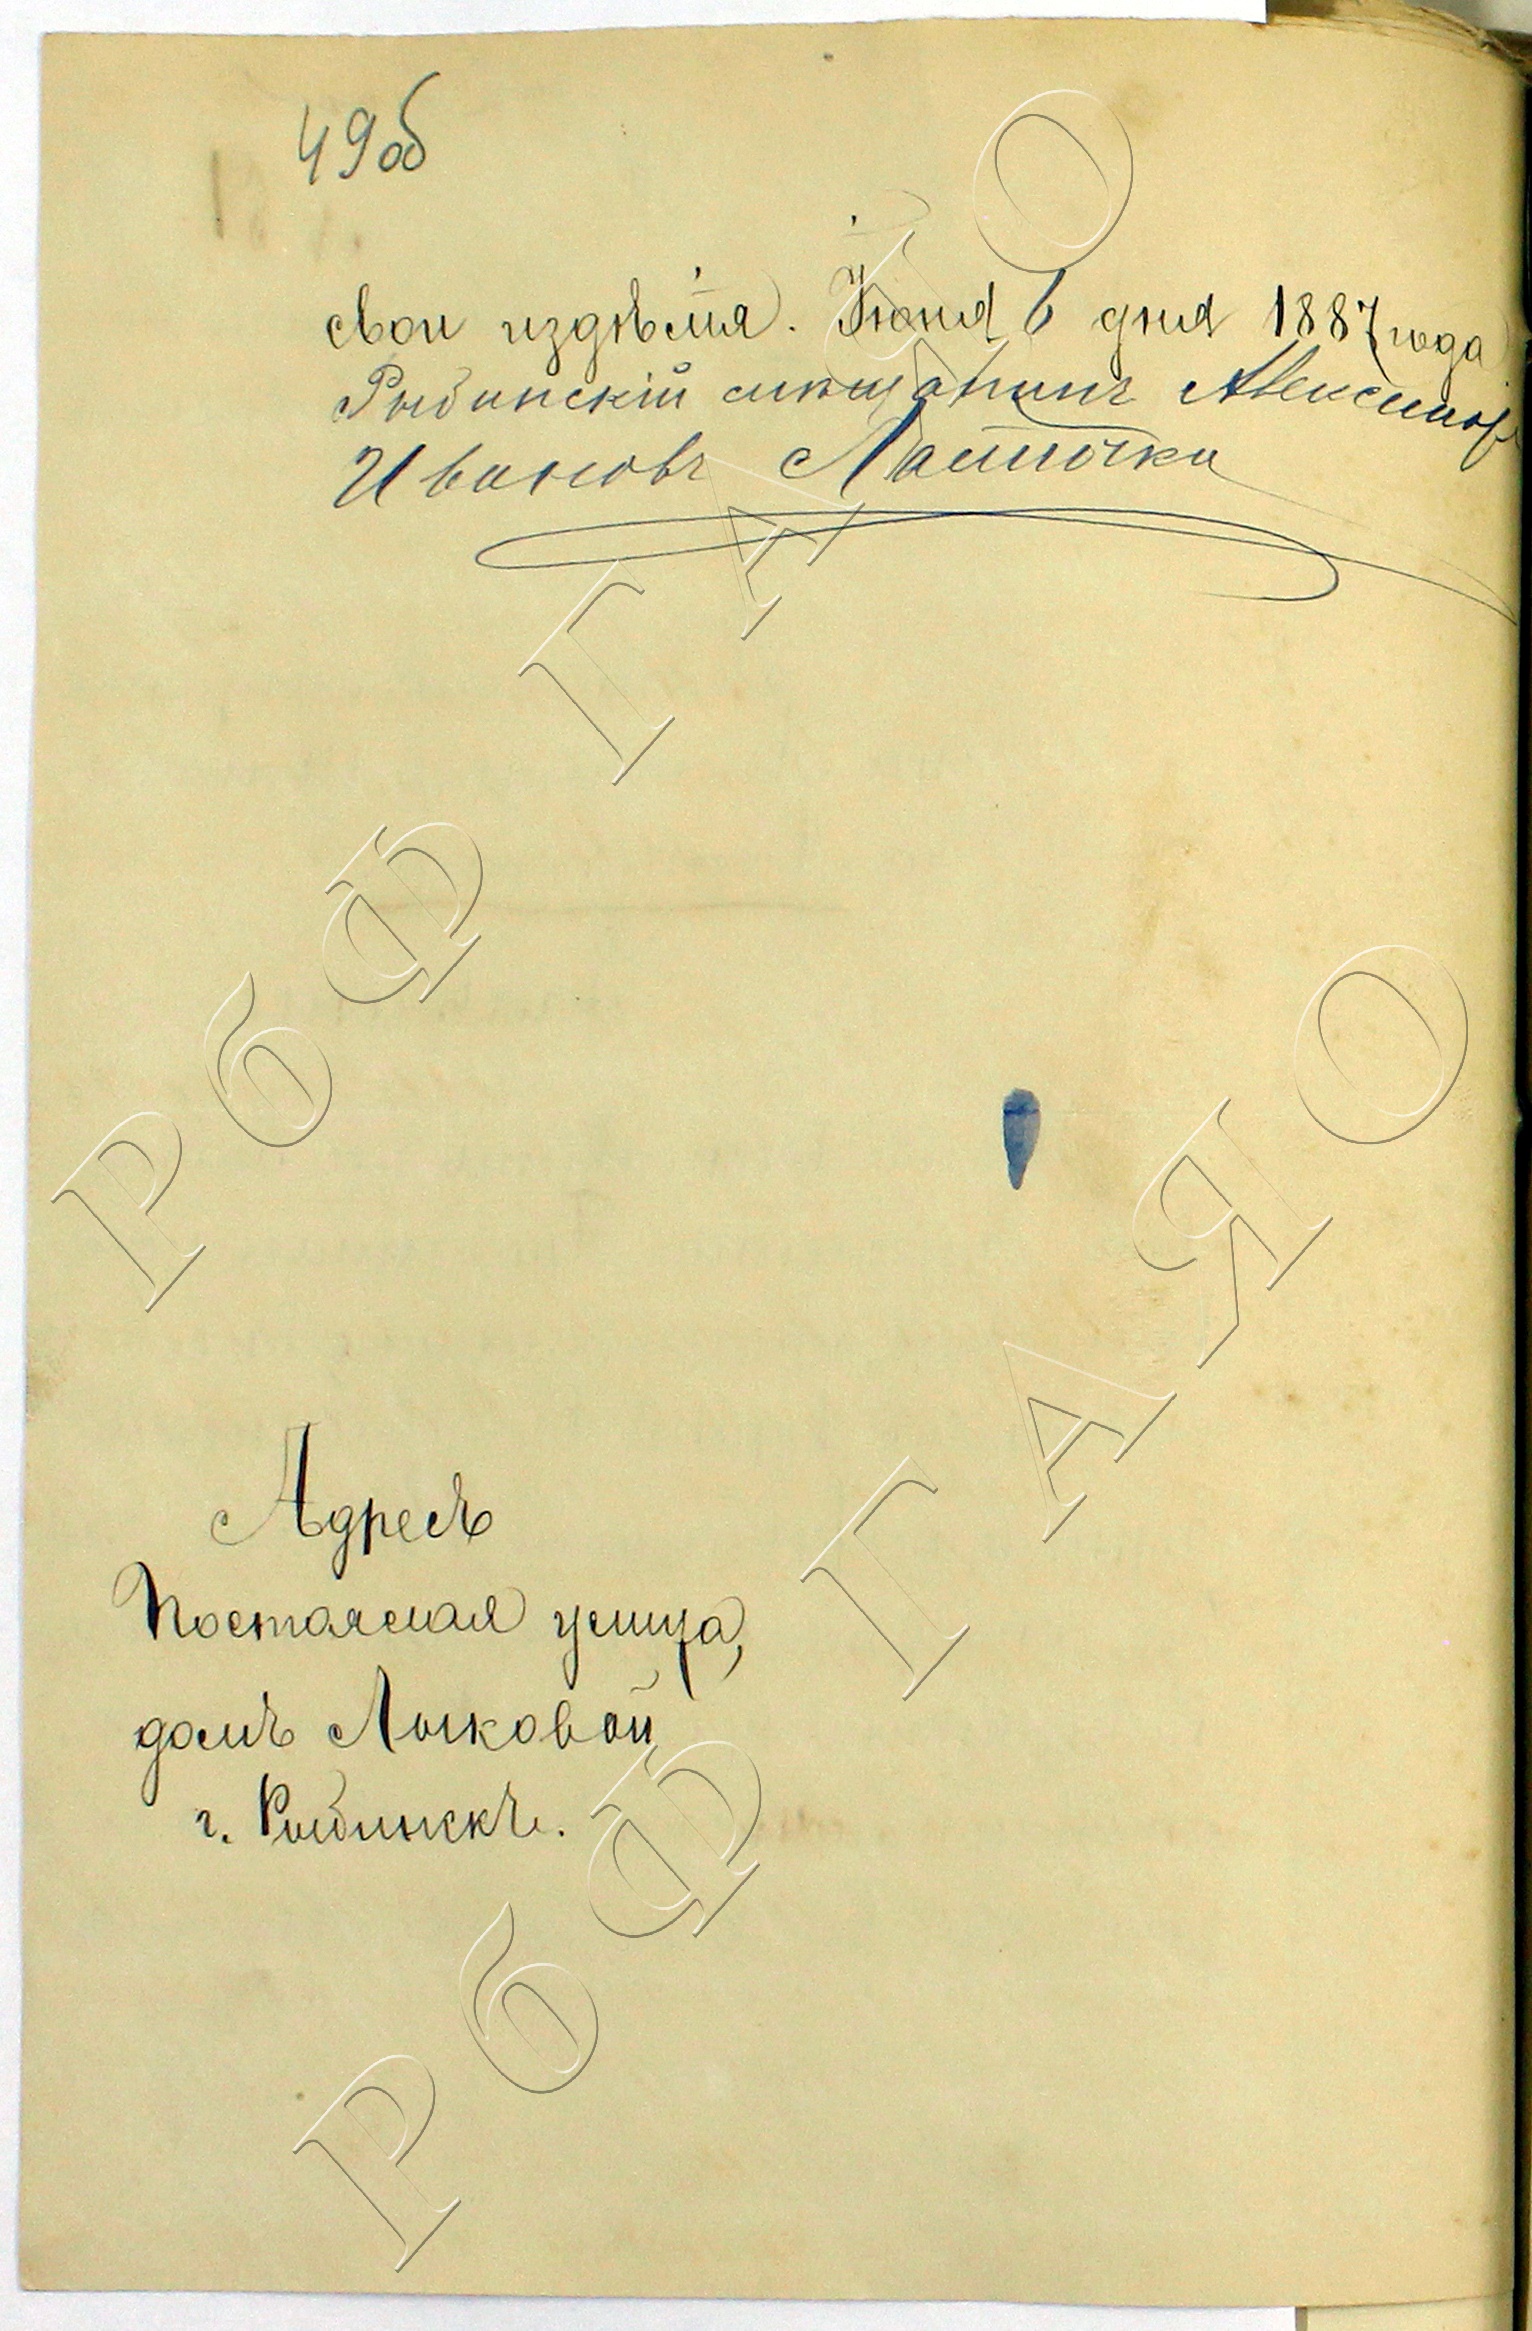 49об
свои издѣлія. Іюня 6 дня 1887 года
Рыбинскій мѣщанинъ Александръ
Ивановъ Ласточка
Адресъ
Постоялая улица,
домъ Лыковой
г. Рыбинскъ.
РбФ ГАЯО
РбФ ГАЯО